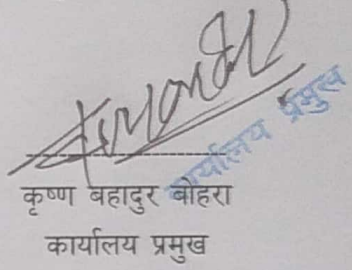 कार्यालय प्रमुख
कृष्ण बहादुर बोहरा
कार्यालय प्रमुख